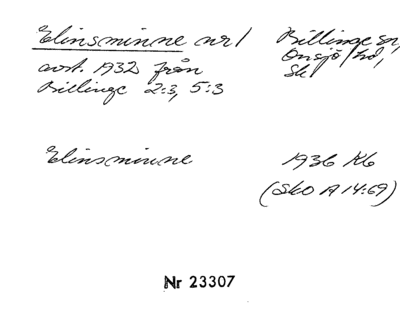 Elinsminne nr 1 Billinge sn,
avst. 1932 från Onsjö hd,
Billinge 2:3, 5:3 Sk
Elinsminne 1936 Kb
(Sko A 14:69)
Nr 23307